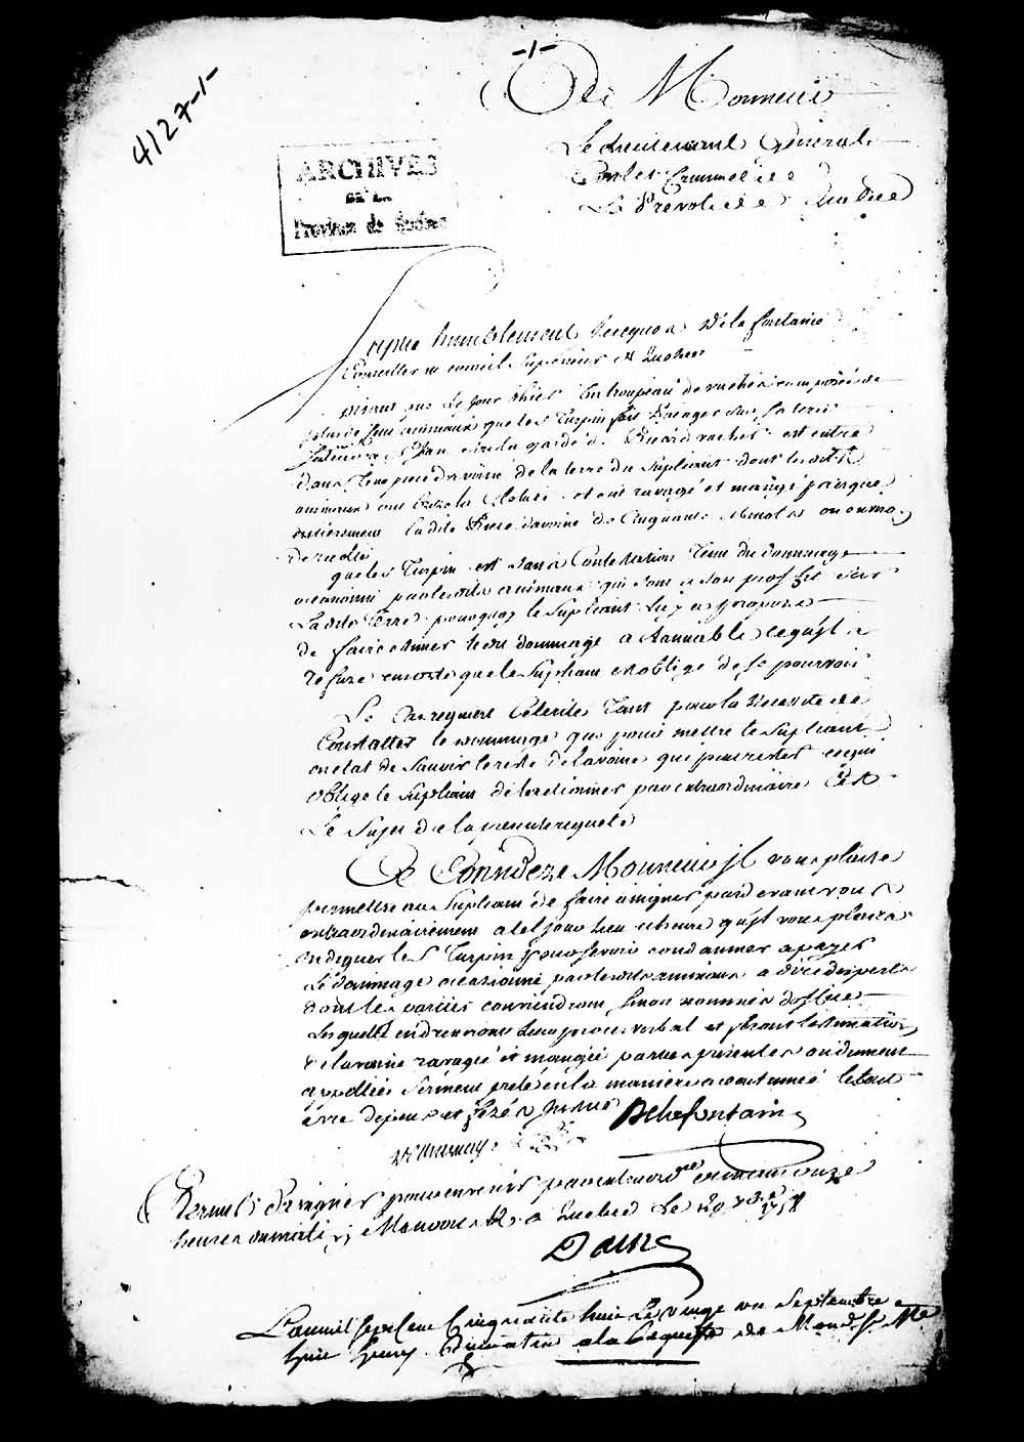 -1-
4127-1-
A Monsieur
Le Lieutenant General
Civil et Criminel de
La Prevoté de Quebec
ARCHIVES
DE LA
Province de Québec
Suplie humblement Jacques De la fontaine
Conseiller au conseil Superieur de Quebec
disant que Le jour d'hier un troupeau de vaches composé de
plus de animaux que le Sr Turpin fait sur sa terre
St Jean garde de Ricard vacher est entré
dans une piece d'avoine de la terre du Supliant dont lesdits
animaux ont la Cloture et ont ravagé et mangé presque
entierement ladite Piece d'avoine de Cinquante Minots ou environ
de recolte
que le Sr Turpin est sans Contestation tenu du dommage
occasionné par lesdits animaux qui sont a son proffit sur
Ladite Terre pourquoy le Supliant Luy a proposé
de faire estimer le dommage a l'amiable ce qu'il a
refuzé en sorte que le Supliant est oblige de se pourvoir
Le Cas requiert Celerité Tant pour la Necessité de
Constatter le dommage que pour mettre le Supliant
en etat de Sauver le reste de l'avoine qui peut rester ce qui
oblige le Supliant de par extraordinaire C'est
Le Sujet de la presente requete
Ce Consideré Monsieur il vous plaise
permettre au Supliant de faire assigner pardevant vous
extraordinairement a tel jour lieu et heure qu'il vous plaira
indiquer le Sr Turpin pour se voir condamner a payer
Le dommage occasionné par lesdits animaux a dire d'experts
dont les parties conviendront sinon nommés d'office
Lesquels en dresseront leur proces verbal et feront l'estimation
de l'avoine ravagée et mangée parties presentes ou duement
appellées Serment preté en la maniere accoutumée le tout
Delafontaine
Permis d'assigner pour venir par extraordre demain onze
heures du matin Mandons &c a Quebec Le 20 7bre 1758
Daine
L'an mil sept Cent Cinquante huit Le vingt un Septembre
a la Requeste de Mond. Sr